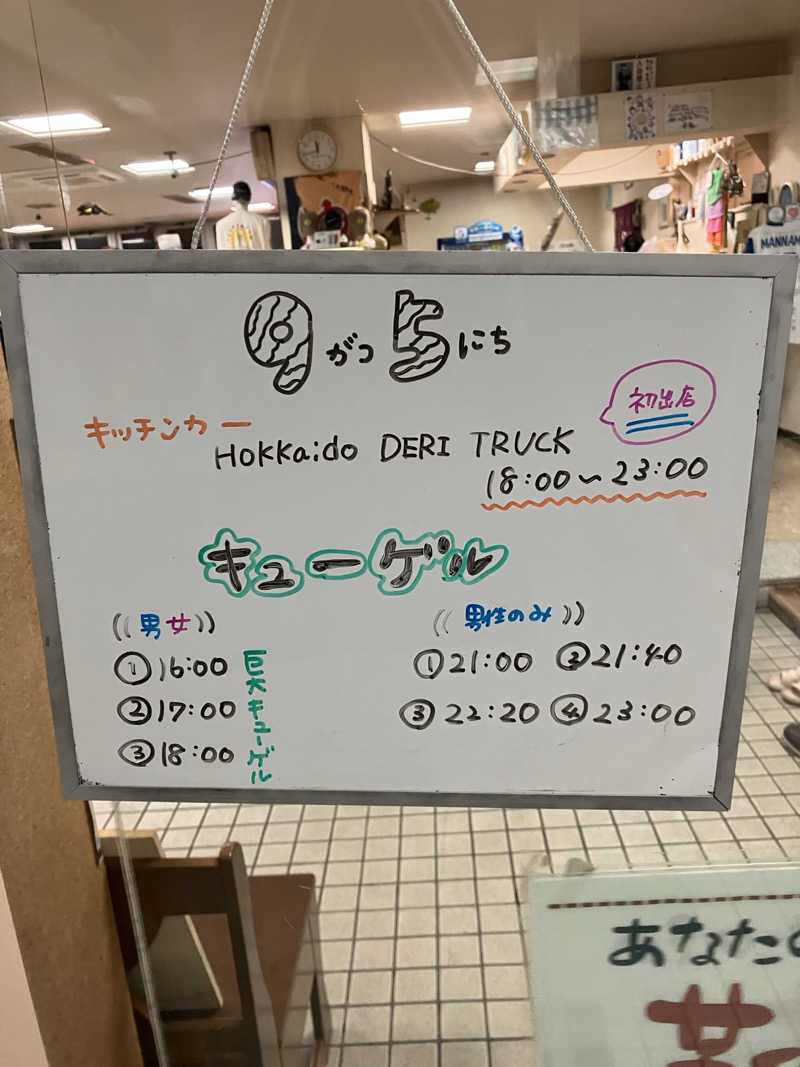 9がつ5にち
キッチンカー
初出店
Hokkaido DERI TRUCK
18:00〜23:00
キューゲル
((男女))
①16:00
②17:00
③18:00
巨大キューゲル
((男性のみ))
①21:00 ②21:40
③22:20 ④23:00
MANNAM
あなたの